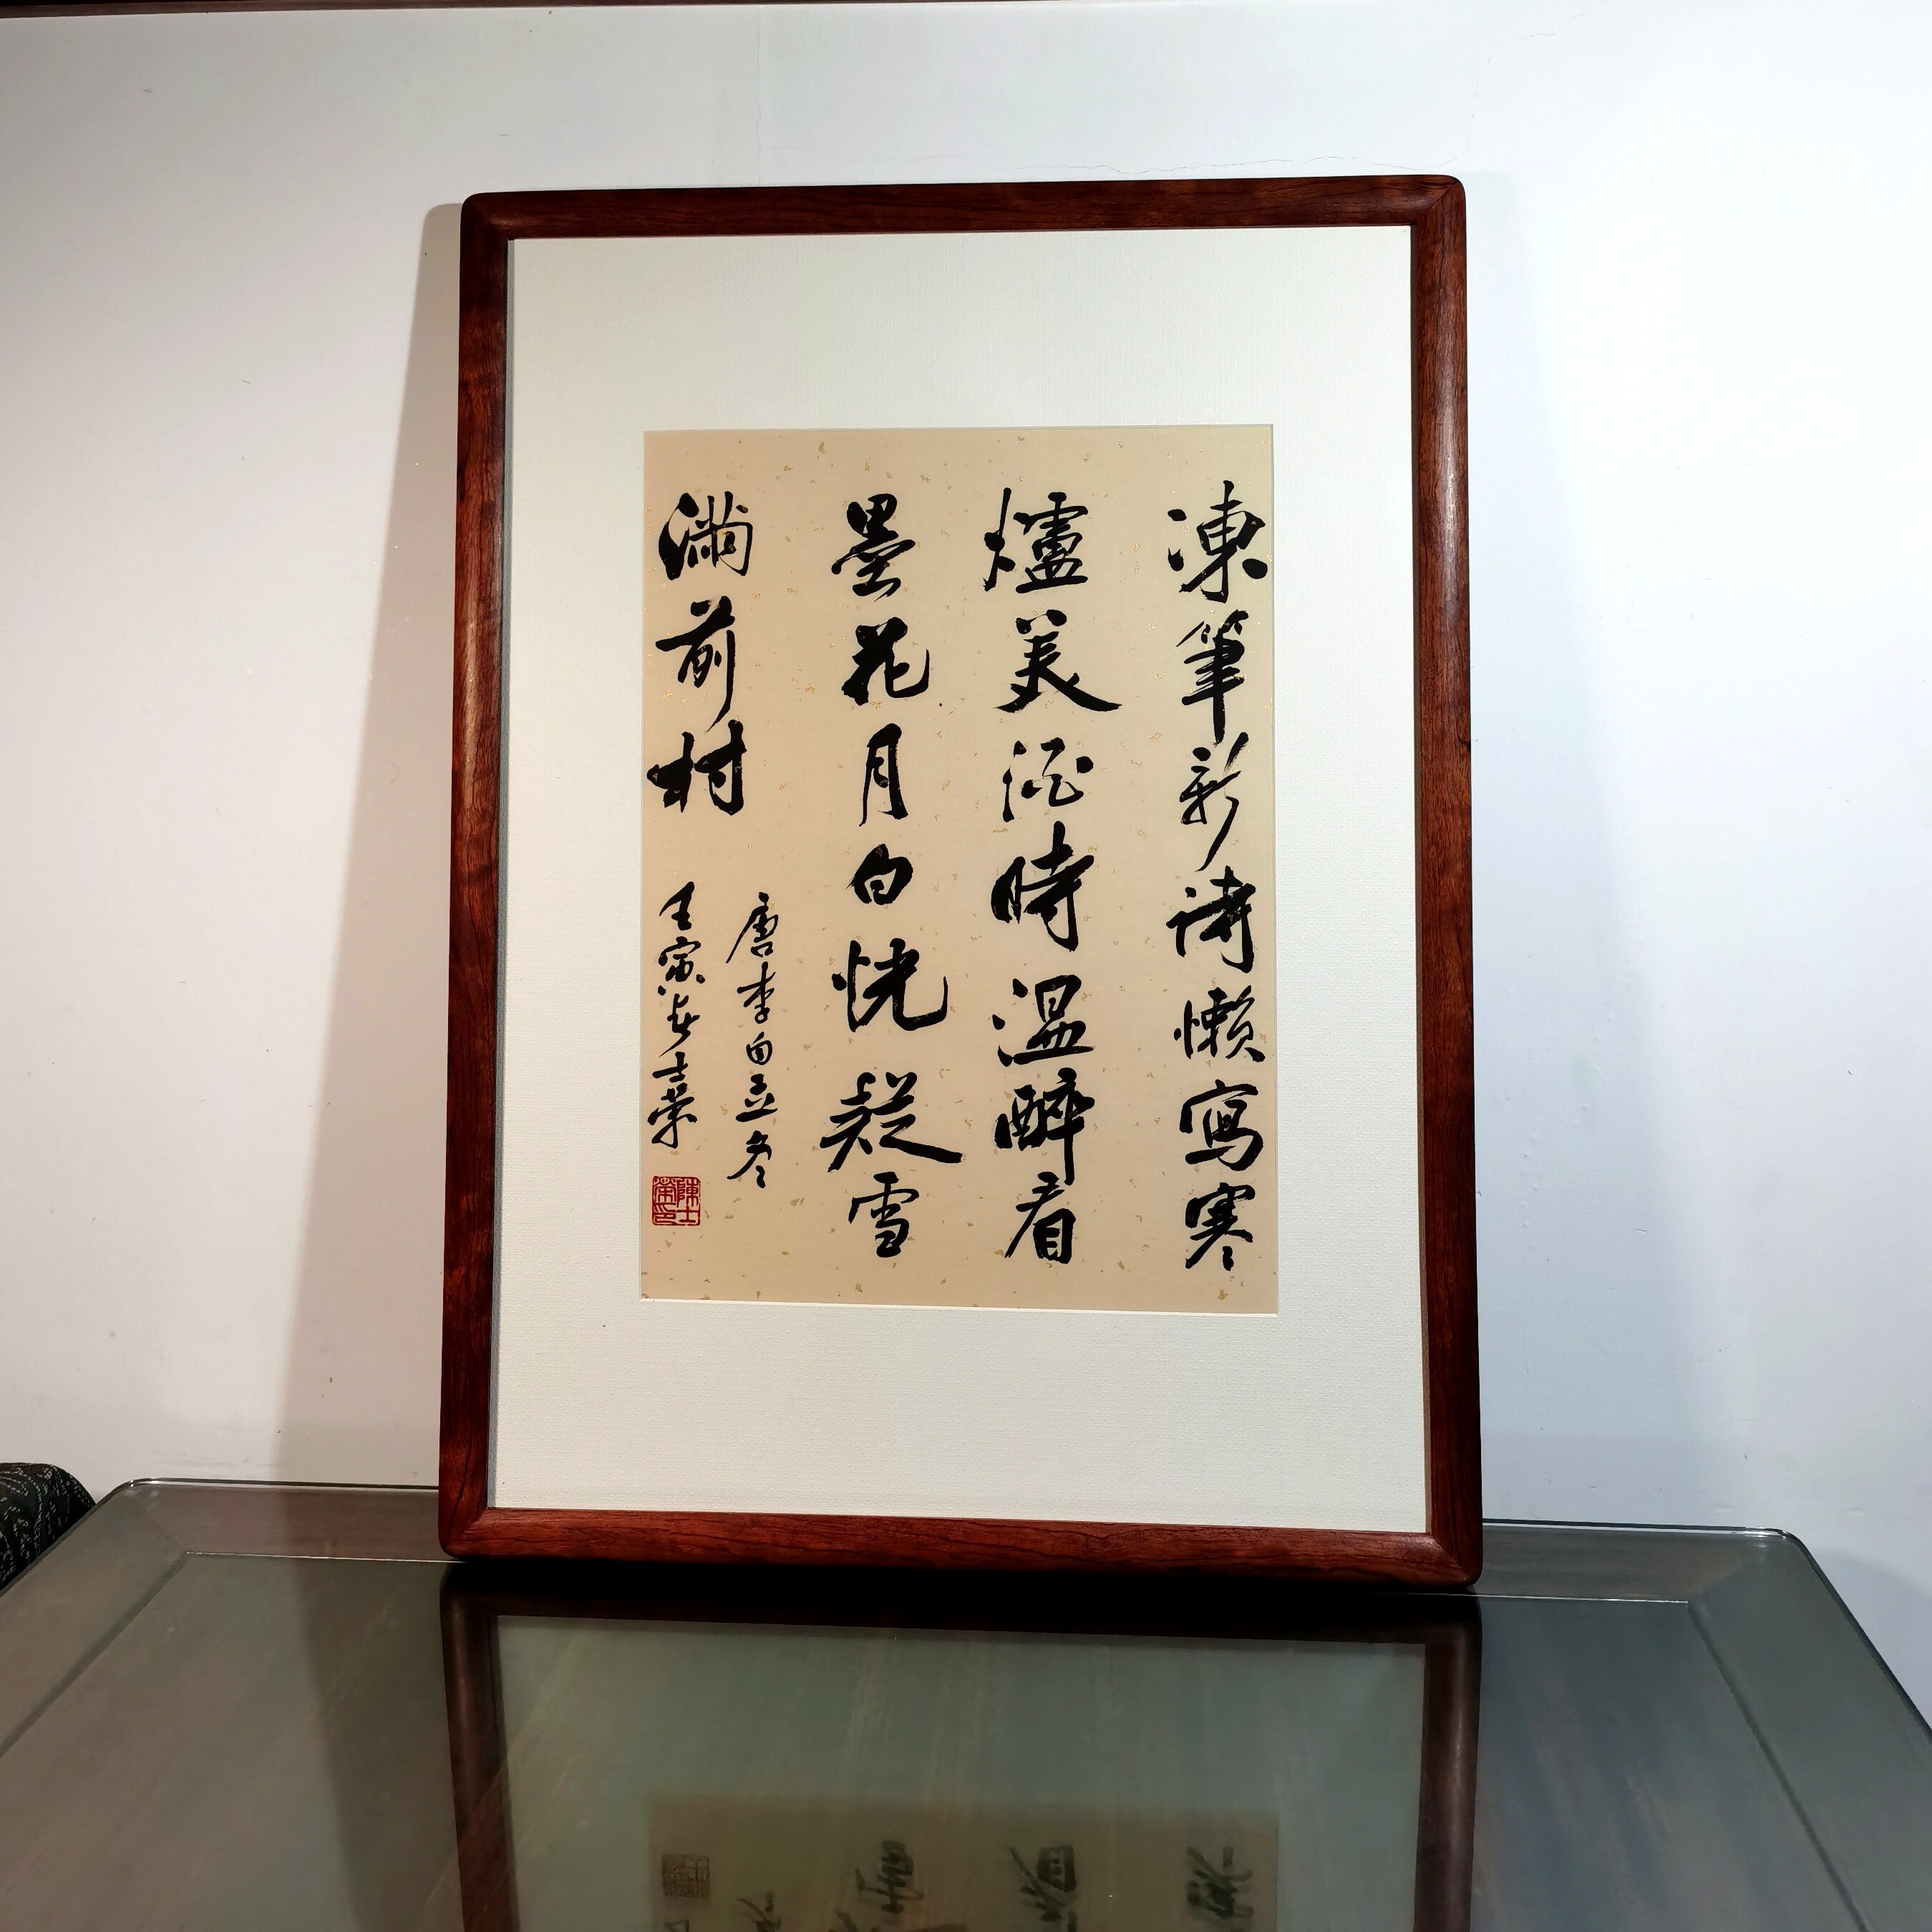 凍筆新詩懶寫寒
爐美酒時溫醉看
墨花月白恍疑雪
滿前村
唐李白立冬
壬寅年士榮
陳士榮印